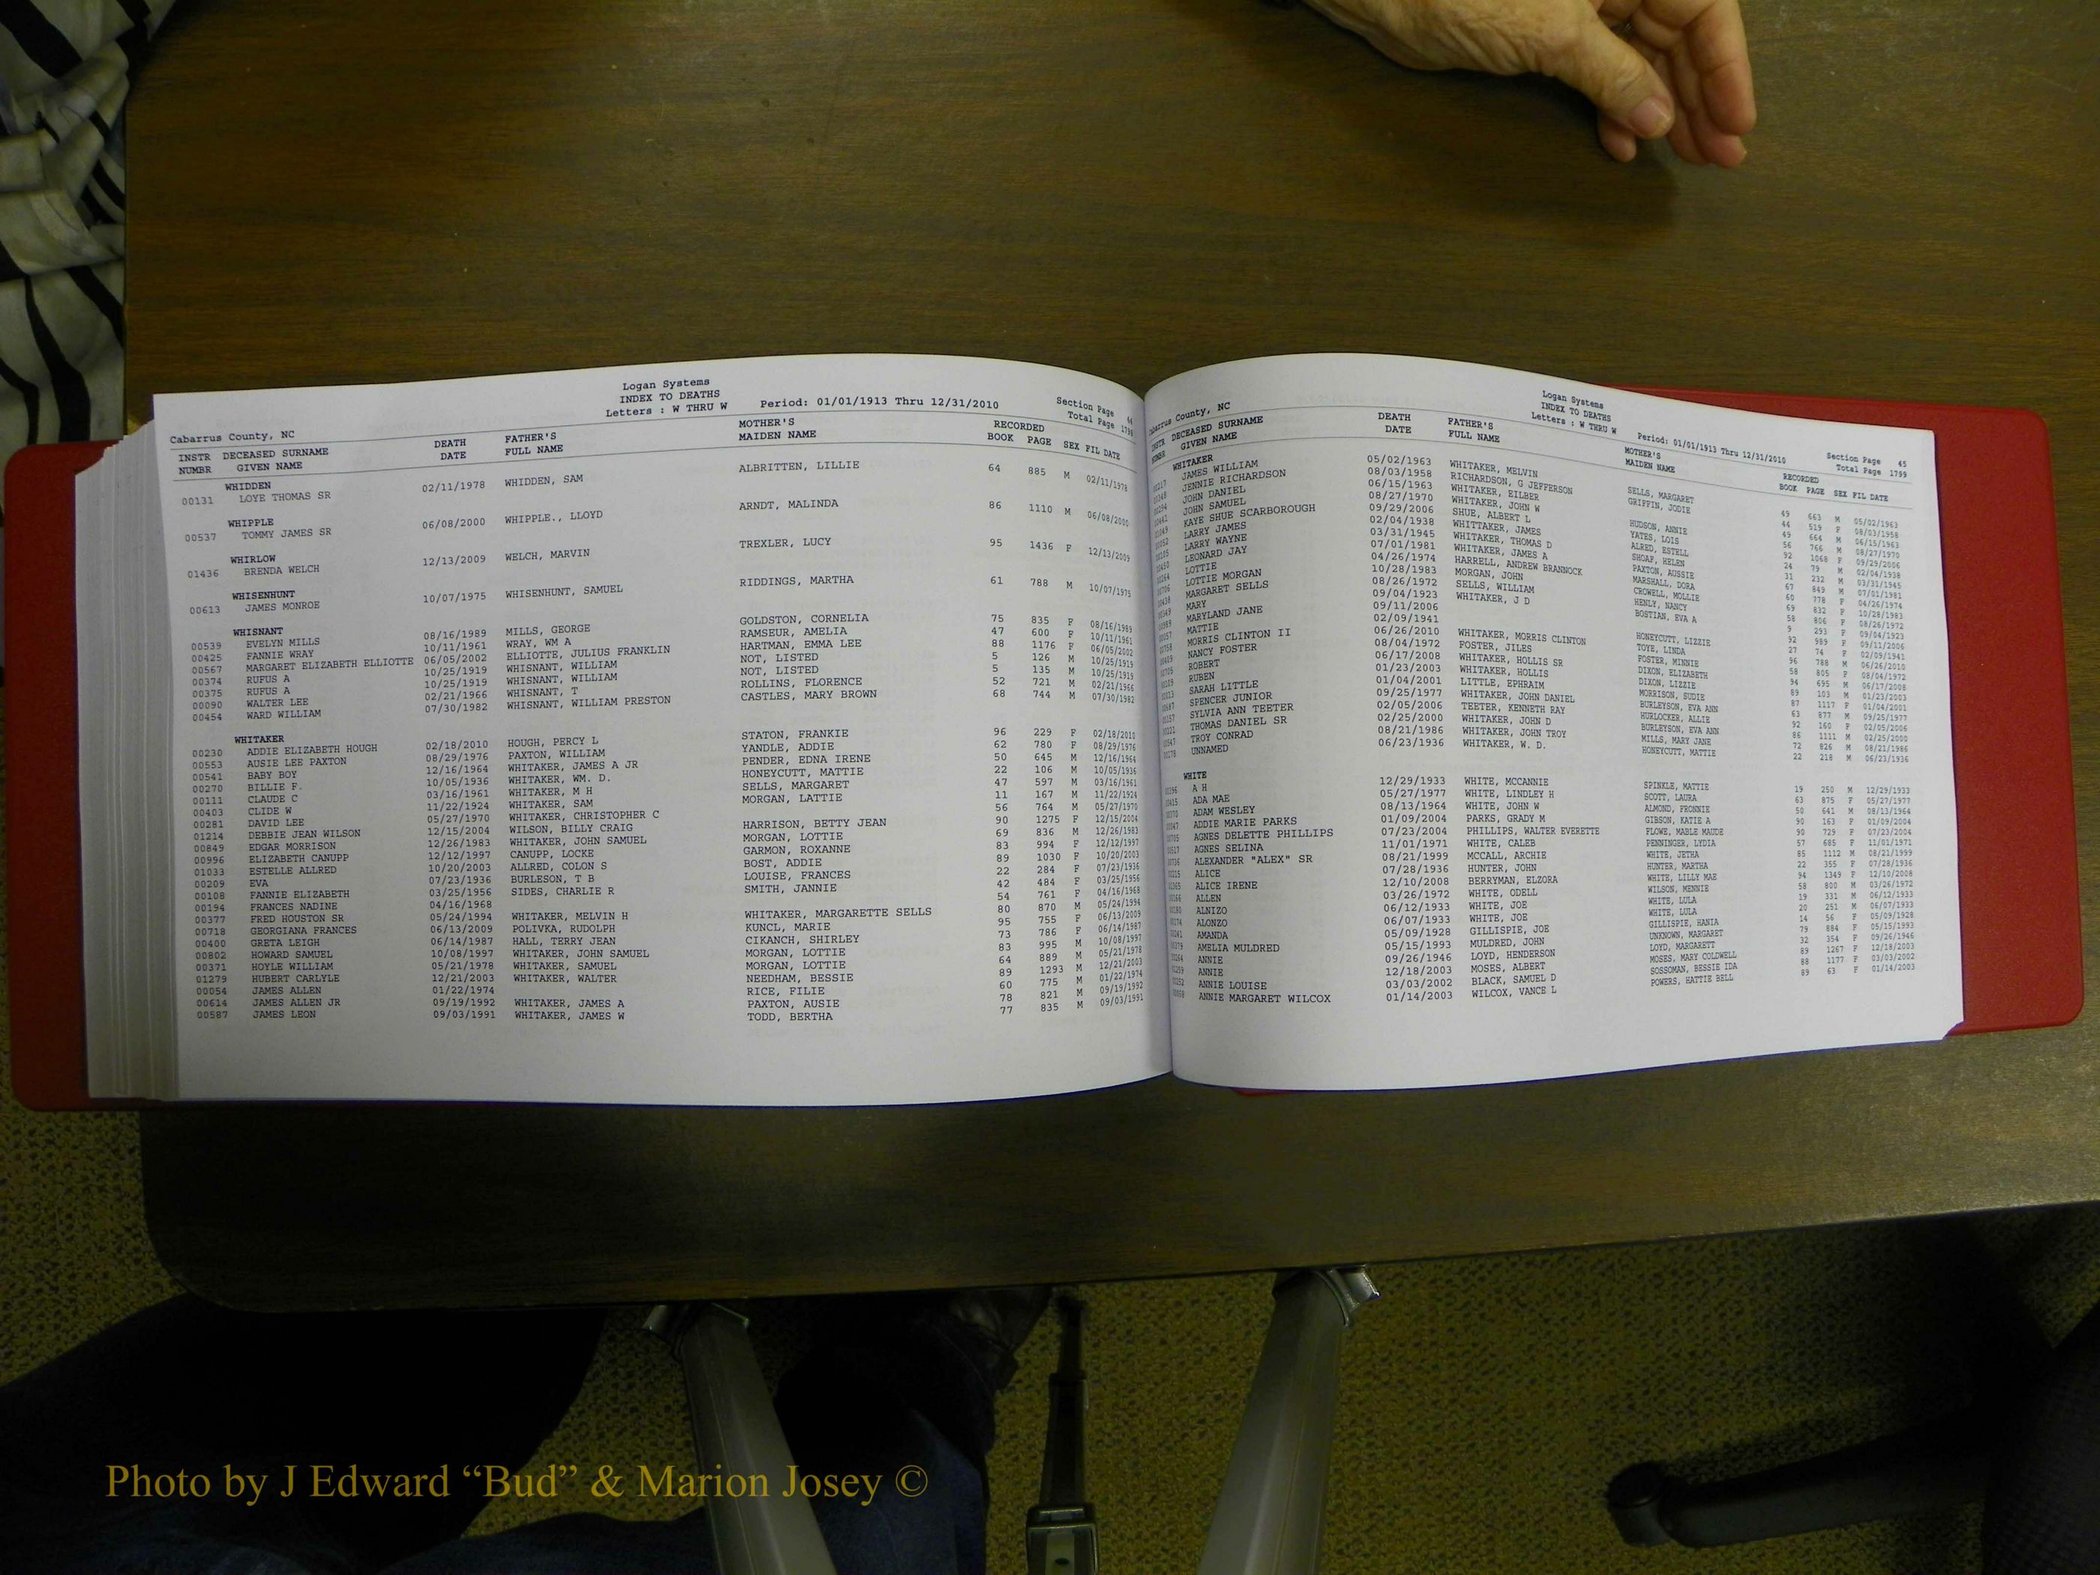 Logan Systems
INDEX TO DEATHS
Letters : W THRU W Period: 01/01/1913 Thru 12/31/2010 Section Page 44
Cabarrus County, NC Total Page 1798
INSTR DECEASED SURNAME DEATH FATHER'S MOTHER'S RECORDED
NUMBR GIVEN NAME DATE FULL NAME MAIDEN NAME BOOK PAGE SEX FIL DATE
WHIDDEN
00131 LOYE THOMAS SR 02/11/1978 WHIDDEN, SAM ALBRITTEN, LILLIE 64 885 M 02/11/1978
WHIPPLE
00537 TOMMY JAMES SR 06/08/2000 WHIPPLE., LLOYD ARNDT, MALINDA 86 1110 M 06/08/2000
WHIRLOW
01436 BRENDA WELCH 12/13/2009 WELCH, MARVIN TREXLER, LUCY 95 1436 F 12/13/2009
WHISENHUNT
00613 JAMES MONROE 10/07/1975 WHISENHUNT, SAMUEL RIDDINGS, MARTHA 61 788 M 10/07/1975
WHISNANT
00539 EVELYN MILLS 08/16/1989 MILLS, GEORGE GOLDSTON, CORNELIA 75 835 F 08/16/1989
00425 FANNIE WRAY 10/11/1961 WRAY, WM A RAMSEUR, AMELIA 47 600 F 10/11/1961
00567 MARGARET ELIZABETH ELLIOTTE 06/05/2002 ELLIOTTE, JULIUS FRANKLIN HARTMAN, EMMA LEE 88 1176 F 06/05/2002
00374 RUFUS A 10/25/1919 WHISNANT, WILLIAM NOT, LISTED 5 126 M 10/25/1919
00375 RUFUS A 10/25/1919 WHISNANT, WILLIAM NOT, LISTED 5 135 M 10/25/1919
00090 WALTER LEE 02/21/1966 WHISNANT, T ROLLINS, FLORENCE 52 721 M 02/21/1966
00454 WARD WILLIAM 07/30/1982 WHISNANT, WILLIAM PRESTON CASTLES, MARY BROWN 68 744 M 07/30/1982
WHITAKER
00230 ADDIE ELIZABETH HOUGH 02/18/2010 HOUGH, PERCY L STATON, FRANKIE 96 229 F 02/18/2010
00553 AUSIE LEE PAXTON 08/29/1976 PAXTON, WILLIAM YANDLE, ADDIE 62 780 F 08/29/1976
00541 BABY BOY 12/16/1964 WHITAKER, JAMES A JR PENDER, EDNA IRENE 50 645 M 12/16/1964
00270 BILLIE F. 10/05/1936 WHITAKER, WM. D. HONEYCUTT, MATTIE 22 106 M 10/05/1936
00111 CLAUDE C 03/16/1961 WHITAKER, M H SELLS, MARGARET 47 597 M 03/16/1961
00403 CLIDE W 11/22/1924 WHITAKER, SAM MORGAN, LATTIE 11 167 M 11/22/1924
00281 DAVID LEE 05/27/1970 WHITAKER, CHRISTOPHER C 56 764 M 05/27/1970
01214 DEBBIE JEAN WILSON 12/15/2004 WILSON, BILLY CRAIG HARRISON, BETTY JEAN 90 1275 F 12/15/2004
00849 EDGAR MORRISON 12/26/1983 WHITAKER, JOHN SAMUEL MORGAN, LOTTIE 69 836 M 12/26/1983
00996 ELIZABETH CANUPP 12/12/1997 CANUPP, LOCKE GARMON, ROXANNE 83 994 F 12/12/1997
01033 ESTELLE ALLRED 10/20/2003 ALLRED, COLON S BOST, ADDIE 89 1030 F 10/20/2003
00209 EVA 07/23/1936 BURLESON, T B LOUISE, FRANCES 22 284 F 07/23/1936
00108 FANNIE ELIZABETH 03/25/1956 SIDES, CHARLIE R SMITH, JANNIE 42 484 F 03/25/1956
00194 FRANCES NADINE 04/16/1968 54 761 F 04/16/1968
00377 FRED HOUSTON SR 05/24/1994 WHITAKER, MELVIN H WHITAKER, MARGARETTE SELLS 80 870 M 05/24/1994
00718 GEORGIANA FRANCES 06/13/2009 POLIVKA, RUDOLPH KUNCL, MARIE 95 755 F 06/13/2009
00400 GRETA LEIGH 06/14/1987 HALL, TERRY JEAN CIKANCH, SHIRLEY 73 786 F 06/14/1987
00802 HOWARD SAMUEL 10/08/1997 WHITAKER, JOHN SAMUEL MORGAN, LOTTIE 83 995 M 10/08/1997
00371 HOYLE WILLIAM 05/21/1978 WHITAKER, SAMUEL MORGAN, LOTTIE 64 889 M 05/21/1978
01279 HUBERT CARLYLE 12/21/2003 WHITAKER, WALTER NEEDHAM, BESSIE 89 1293 M 12/21/2003
00054 JAMES ALLEN 01/22/1974 RICE, FILIE 60 775 M 01/22/1974
00614 JAMES ALLEN JR 09/19/1992 WHITAKER, JAMES A PAXTON, AUSIE 78 821 M 09/19/1992
00587 JAMES LEON 09/03/1991 WHITAKER, JAMES W TODD, BERTHA 77 835 M 09/03/1991
Logan Systems
INDEX TO DEATHS
Letters : W THRU W Period: 01/01/1913 Thru 12/31/2010 Section Page 45
Cabarrus County, NC Total Page 1799
INSTR DECEASED SURNAME DEATH FATHER'S MOTHER'S RECORDED
NUMBR GIVEN NAME DATE FULL NAME MAIDEN NAME BOOK PAGE SEX FIL DATE
WHITAKER
JAMES WILLIAM 05/02/1963 WHITAKER, MELVIN SELLS, MARGARET 49 663 M 05/02/1963
JENNIE RICHARDSON 08/03/1958 RICHARDSON, G JEFFERSON GRIFFIN, JODIE 44 519 F 08/03/1958
JOHN DANIEL 06/15/1963 WHITAKER, EILBER 49 664 M 06/15/1963
JOHN SAMUEL 08/27/1970 WHITAKER, JOHN W HUDSON, ANNIE 56 766 M 08/27/1970
KAYE SHUE SCARBOROUGH 09/29/2006 SHUE, ALBERT L YATES, LOIS 92 1068 F 09/29/2006
LARRY JAMES 02/04/1938 WHITTAKER, JAMES ALRED, ESTELL 24 79 M 02/04/1938
LARRY WAYNE 03/31/1945 WHITAKER, THOMAS D SHOAF, HELEN 31 232 M 03/31/1945
LEONARD JAY 07/01/1981 WHITAKER, JAMES A PAXTON, AUSSIE 67 849 M 07/01/1981
LOTTIE 04/26/1974 HARRELL, ANDREW BRANNOCK MARSHALL, DORA 60 778 F 04/26/1974
LOTTIE MORGAN 10/28/1983 MORGAN, JOHN CROWELL, MOLLIE 69 832 F 10/28/1983
MARGARET SELLS 08/26/1972 SELLS, WILLIAM HENLY, NANCY 58 806 F 08/26/1972
MARY 09/04/1923 WHITAKER, J D BOSTIAN, EVA A 9 293 F 09/04/1923
MARYLAND JANE 09/11/2006 92 989 F 09/11/2006
MATTIE 02/09/1941 HONEYCUTT, LIZZIE 27 74 F 02/09/1941
MORRIS CLINTON II 06/26/2010 WHITAKER, MORRIS CLINTON TOYE, LINDA 96 788 M 06/26/2010
NANCY FOSTER 08/04/1972 FOSTER, JILES FOSTER, MINNIE 58 805 F 08/04/1972
ROBERT 06/17/2008 WHITAKER, HOLLIS SR DIXON, ELIZABETH 94 695 M 06/17/2008
RUBEN 01/23/2003 WHITAKER, HOLLIS DIXON, LIZZIE 89 103 M 01/23/2003
SARAH LITTLE 01/04/2001 LITTLE, EPHRAIM MORRISON, SUDIE 87 1117 F 01/04/2001
SPENCER JUNIOR 09/25/1977 WHITAKER, JOHN DANIEL BURLEYSON, EVA ANN 63 877 M 09/25/1977
SYLVIA ANN TEETER 02/05/2006 TEETER, KENNETH RAY HURLOCKER, ALLIE 92 160 F 02/05/2006
THOMAS DANIEL SR 02/25/2000 WHITAKER, JOHN D BURLEYSON, EVA ANN 86 1111 M 02/25/2000
TROY CONRAD 08/21/1986 WHITAKER, JOHN TROY MILLS, MARY JANE 72 826 M 08/21/1986
UNNAMED 06/23/1936 WHITAKER, W. D. HONEYCUTT, MATTIE 22 218 M 06/23/1936
WHITE
A H 12/29/1933 WHITE, MCCANNIE SPINKLE, MATTIE 19 250 M 12/29/1933
ADA MAE 05/27/1977 WHITE, LINDLEY H SCOTT, LAURA 63 875 F 05/27/1977
ADAM WESLEY 08/13/1964 WHITE, JOHN W ALMOND, FRONNIE 50 641 M 08/13/1964
ADDIE MARIE PARKS 01/09/2004 PARKS, GRADY M GIBSON, KATIE A 90 163 F 01/09/2004
AGNES DELETTE PHILLIPS 07/23/2004 PHILLIPS, WALTER EVERETTE FLOWE, MABLE MAUDE 90 729 F 07/23/2004
AGNES SELINA 11/01/1971 WHITE, CALEB PENNINGER, LYDIA 57 685 F 11/01/1971
ALEXANDER "ALEX" SR 08/21/1999 MCCALL, ARCHIE WHITE, JETHA 85 1112 M 08/21/1999
ALICE 07/28/1936 HUNTER, JOHN HUNTER, MARTHA 22 355 F 07/28/1936
ALICE IRENE 12/10/2008 BERRYMAN, ELZORA WHITE, LILLY MAE 94 1349 F 12/10/2008
ALLEN 03/26/1972 WHITE, ODELL WILSON, MENNIE 58 800 M 03/26/1972
ALNIZO 06/12/1933 WHITE, JOE WHITE, LULA 19 331 M 06/12/1933
ALONZO 06/07/1933 WHITE, JOE WHITE, LULA 20 251 M 06/07/1933
AMANDA 05/09/1928 GILLISPIE, JOE GILLISPIE, HANIA 14 56 F 05/09/1928
AMELIA MULDRED 05/15/1993 MULDRED, JOHN UNKNOWN, MARGARET 79 884 F 05/15/1993
ANNIE 09/26/1946 LOYD, HENDERSON LOYD, MARGARETT 32 354 F 09/26/1946
ANNIE 12/18/2003 MOSES, ALBERT MOSES, MARY COLDWELL 89 1267 F 12/18/2003
ANNIE LOUISE 03/03/2002 BLACK, SAMUEL D SOSSOMAN, BESSIE IDA 88 1177 F 03/03/2002
ANNIE MARGARET WILCOX 01/14/2003 WILCOX, VANCE L POWERS, HATTIE BELL 89 63 F 01/14/2003
Photo by J Edward “Bud” & Marion Josey ©